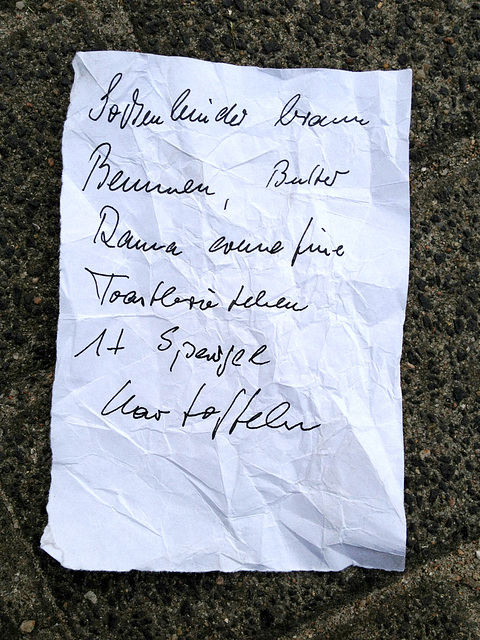 Soßenbinder braun
Blumen, Butter
Rama creme fine
Toastbrötchen
1+ Spargel
Kartoffeln